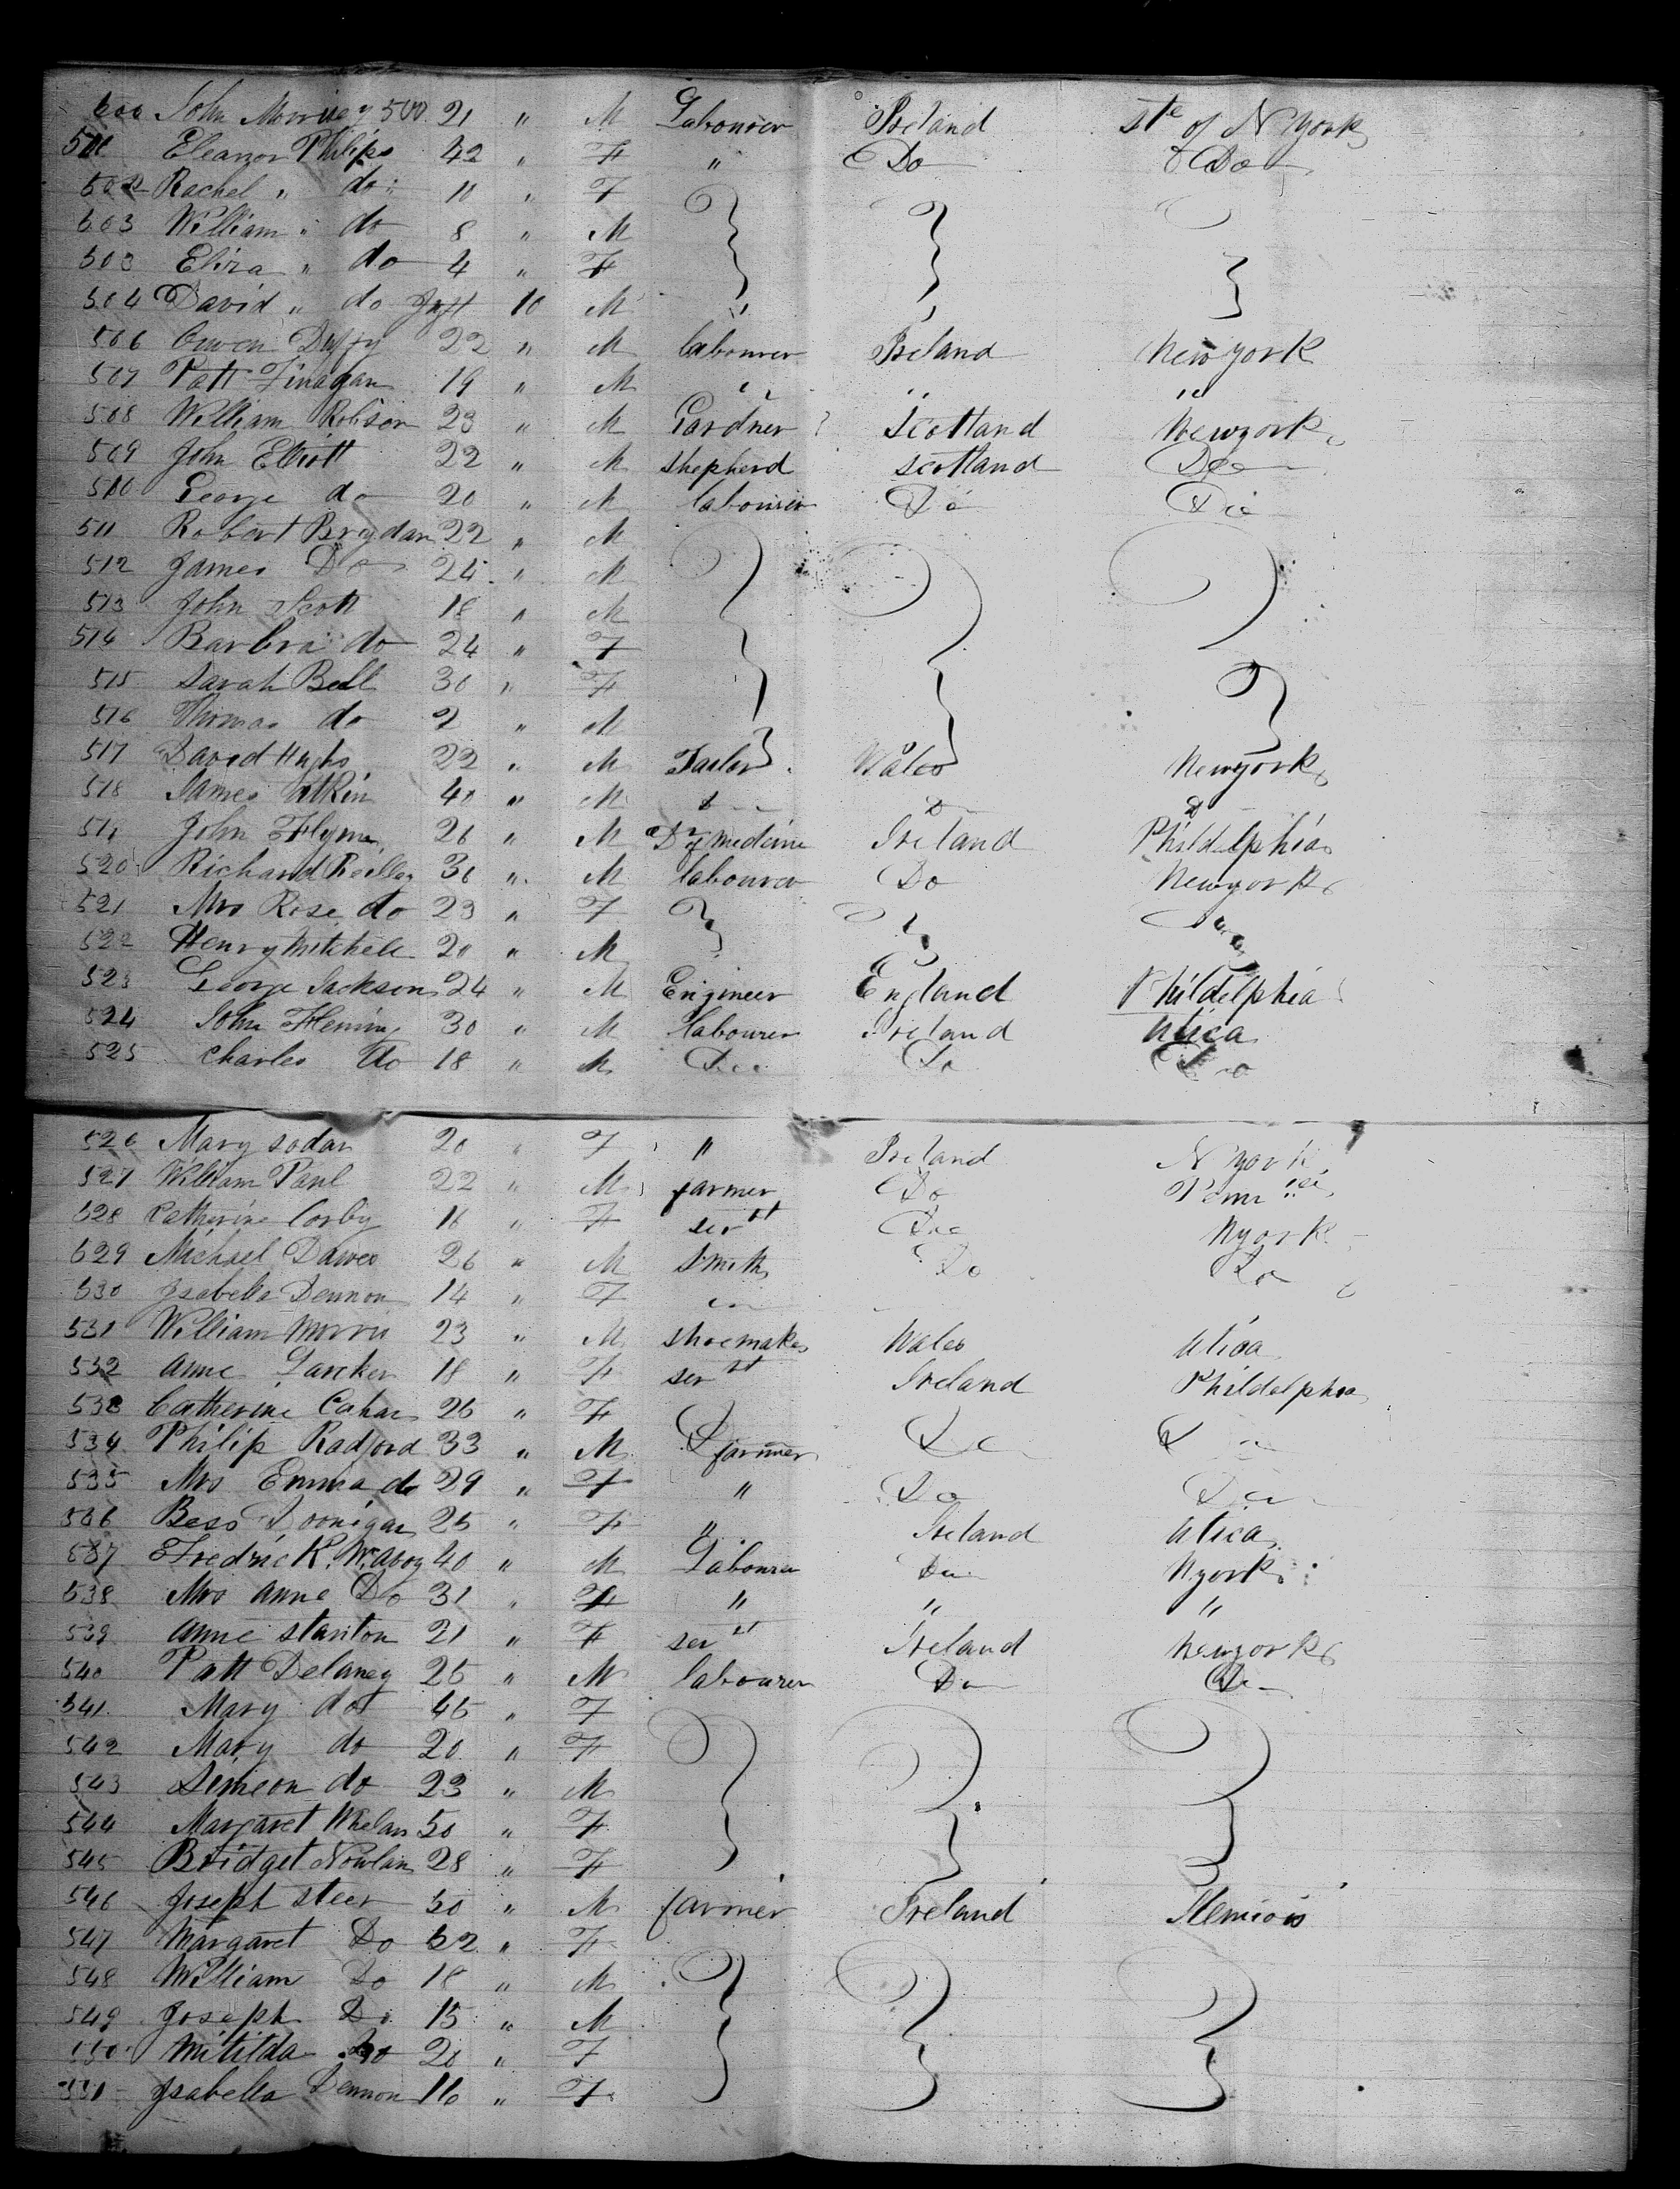 500 John Morrisey 500 21 " M Labourer Ireland Ste of N York
501 Eleanor Philips 42 " F " Do Do
502 Rachel " do 10 " F
503 William " do 8 " M
503 Eliza " do 4 " F
504 David " do Inft 10 M " "
506 Owen Duffy 22 " M labourer Ireland New york
507 Patt Finagan 19 " M " " "
508 William Robson 23 " M Gardner Scotland Newyork
509 John Elliott 22 " M shepherd scotland Do
510 George do 20 " M labourer Do Do
511 Robert Brydan 22 " M
512 James Do 24 " M
513 John Scott 18 " M
514 Barbra do 24 " F
515 Sarah Bell 30 " F
516 Thomas do 2 " M
517 David Hughs 22 " M Tailor Wales Newyork
518 James Atkin 40 " M
519 John Flynn 26 " M Dr of Medicine Ireland Phildelphia
520 Richard Reilley 36 " M labourer Do Newyork
521 Mrs Rose do 23 " F
522 Henry Mitchell 20 " M
523 George Jackson 24 " M Engineer England Phildelphia
524 John Fleming 30 " M labourer Ireland Utica
525 Charles Do 18 " M Do Do Do
526 Mary sodan 20 " F " Ireland N york
527 William Paul 22 " M farmer Do
528 Catherine Corby 16 " F servt Do Nyork
529 Michael Dawes 26 " M Smith Do Do
530 Isabella Dennon 14 " F
531 William Morris 23 " M shoemaker Wales Utica
532 Anne Larcken 18 " F servt Ireland Phildelphia
533 Catherine Cahan 26 " F
534 Philip Radford 33 " M farmer Do Do
535 Mrs Emma do 29 " F " Do Do
536 Bess Doonigan 25 " F " Ireland Utica
537 Fredrick 40 " M Labourer Do Nyork
538 Mrs Anne Do 31 " F " " "
539 Anne stanton 21 " F servt Ireland Newyork
540 Patt Delaney 25 " M labourer Do Do
541 Mary do 45 " F
542 Mary do 20 " F
543 Simeon do 23 " M
544 Margaret Whelan 50 " F
545 Bridget Nowlan 28 " F
546 Joseph steer 50 " M farmer Ireland
547 Margaret Do 52 " F
548 William Do 18 " M
549 Joseph Do 15 " M
550 Mitilda Do 20 " F
551 Isabella Dennon 16 " F